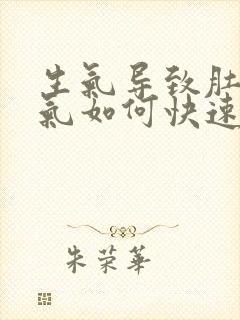 生氣导致肚
氣如何快速
朱荣華